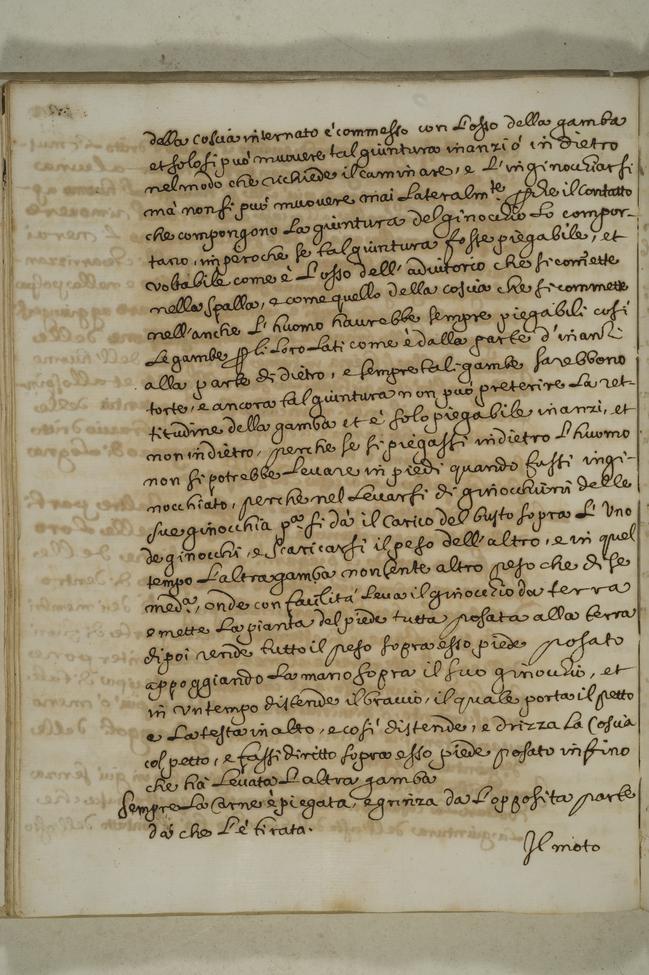 dalla coscia internato è commesso con l'osso della gamba
et solo si può muovere tal giuntura inanzi ò in dietro
nel modo che richiede il caminare, e l'inginocchiarsi
mà non si può muovere mai lateralm.te perche il contatto
che compongono la giuntura del ginocchio lo compor-
tano, imperoche se tal giuntura fosse piegabile, et
voltabile come è l'osso dell'adiutorio che si comette
nella spalla, e come quello della coscia che si commette
nell'anche l'huomo haurebbe sempre piegabili cosi
le gambe per li loro lati come è dalla parte d'inanzi
alla parte di dietro, e sempre tali gambe sarebbono
torte, e ancora tal giuntura non può preterire la ret-
titudine della gamba et è solo piegabile inanzi, et
non indietro, perche se si piegassi indietro l'huomo
non si potrebbe levare in piedi quando fussi ingi-
nocchiato, perche nel levarsi di ginocchioni delle
sue ginocchia p.a si dà il carico del busto sopra l'uno
de ginocchi, e scaricarsi il peso dell'altro, e in quel
tempo l'altra gamba non sente altro peso che di se
med.a, onde con facilità leva il ginocchio da terra
e mette la pianta del piede tutta posata alla terra
dipoi rende tutto il peso sopra esso piede posato
appoggiando la mano sopra il suo ginocchio, et
in un tempo distende il braccio, il quale porta il petto
e la testa in alto, e cosi distende, e drizza la coscia
col petto, e fassi diritto sopra esso piede posato insino
che hà levata l'altra gamba
Sempre la carne è piegata, e grinza da l'opposita parte
da che l'è tirata.
Il moto